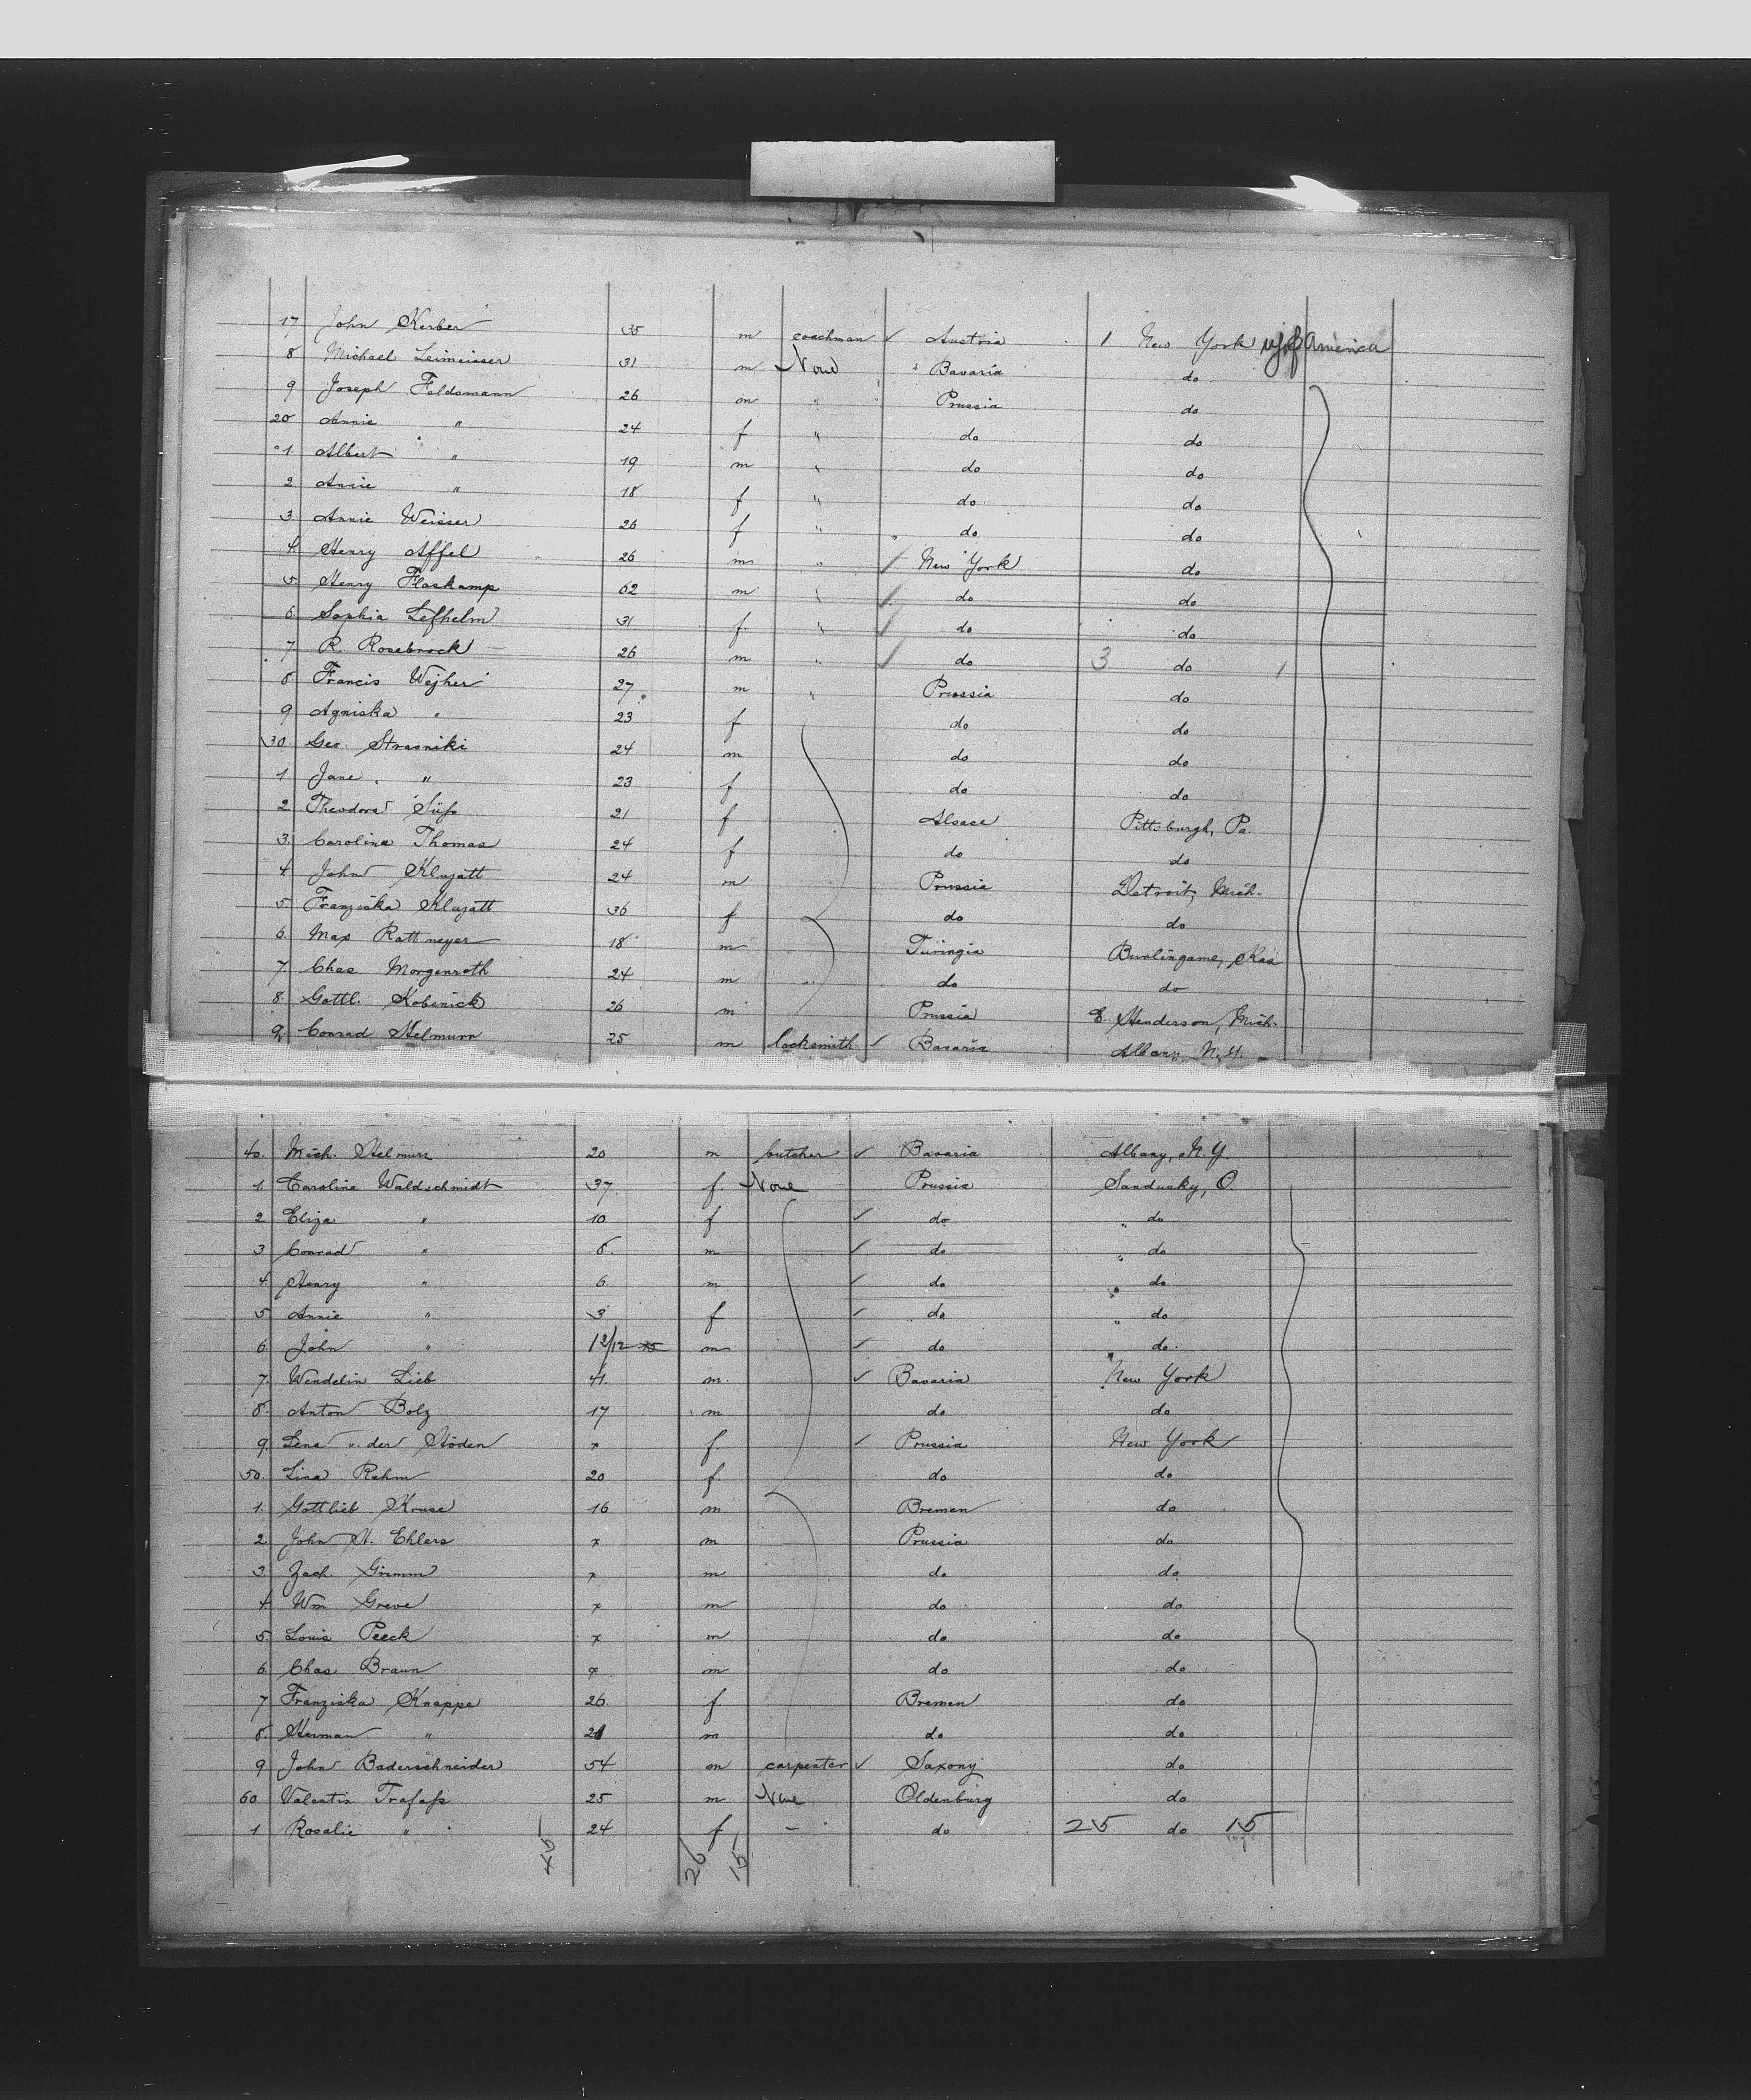 17 John Kerber 35 m coachman ✓ Austria 1 New York U.S. of America
8 Michael Leimeisser 31 m None " Bavaria do
9 Joseph Feldsmann 26 m " Prussia do
20 Annie " 24 f " do do
1. Albert " 19 m " do do
2 Annie " 18 f " do do
3. Annie Weisser 26 f " do do
4. Henry Affel 26 m " ✓ New York do
5. Henry Flaskamp 62 m " ✓ do do
6. Sophia Lefhelm 31 f. " ✓ do do
7 R. Rosebrock 26 m " ✓ do 3 do 1
8. Francis Wejher 27 m " Prussia do
9 Agniska " 23 f do do
30. Geo. Strasniki 24 m do do
1 Jane " 23 f do do
2 Theodora Süß 21 f Alsace Pittsburgh, Pa.
3. Carolina Thomas 24 f do do
4 John Klujatt 24 m Prussia Detroit, Mich.
5. Franziska Klujatt 36 f do do
6. Max Rottmeyer 18 m Turingia Burlingame, Kas
7. Chas Morgenroth 24 m do do
8. Gottl. Kobenick 26 m Prussia E. Henderson, Mich.
9. Conrad Helmurr 25 m locksmith ✓ Bavaria Albany N.Y.
40. Mich. Helmurr 20 m butcher ✓ Bavaria Albany, N.Y.
1. Caroline Waldschmidt 37 f. None Prussia Sandusky, O.
2 Eliza " 10 f ✓ do " do
3 Conrad " 8. m ✓ do " do
4. Henry " 6. m ✓ do " do
5 Annie " 3 f ✓ do " do
6. John " m ✓ do " do.
7. Wendelin Lieb 41. m. ✓ Bavaria New York
8. Anton Bolz 17 m do do
9. Lena v. der Höden x f. ✓ Prussia New York
50. Lina Rehm 20 f do do
1. Gottlieb Kruse 16 m Bremen do
2 John H. Ehlers x m Prussia do
3. Zach. Grimm x m do do
4. Wm Greve x m do do
5. Louis Peeck x m do do
6. Chas Braun x m do do
7 Franziska Knappe 26. f Bremen do
8. Herman " m do do
9. John Baderschneider 54 m carpenter ✓ Saxony do
60 Valentin Trafaß 25 m None Oldenburg do
1 Rosalie " 24 f - do 25 do 15
45 26 19